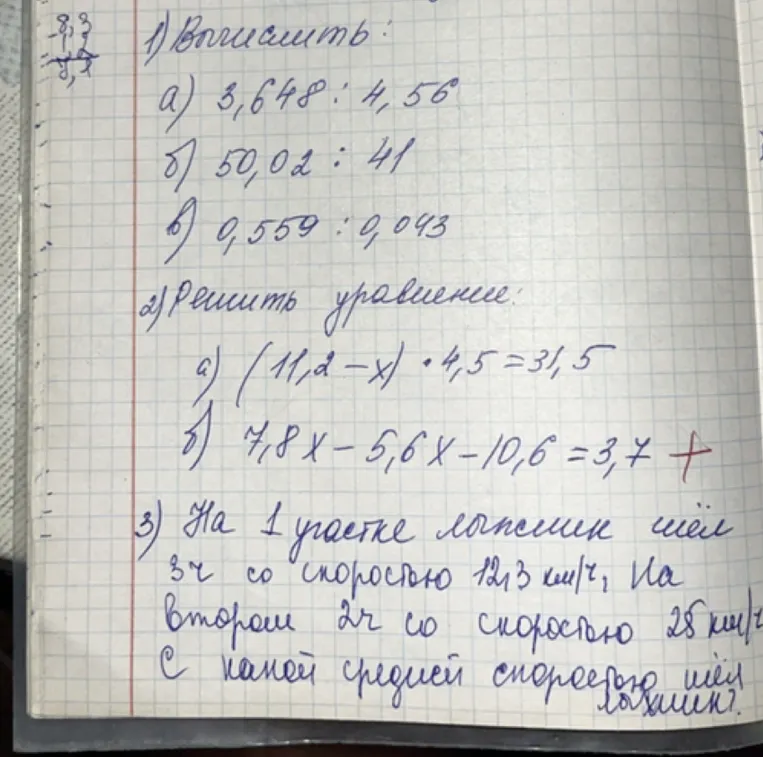 8,3
1) Вычислить:
а) 3,648 : 4,56
б) 50,02 : 41
в) 0,559 : 0,043
2) Решить уравнение:
а) (11,2 - х) · 4,5 = 31,5
б) 7,8х - 5,6х - 10,6 = 3,7 +
3) На 1 участке лыжник шёл
3ч со скоростью 12,3 км/ч, На
втором 2ч со скоростью 25 км/ч
С какой средней скоростью шёл
лыжник?